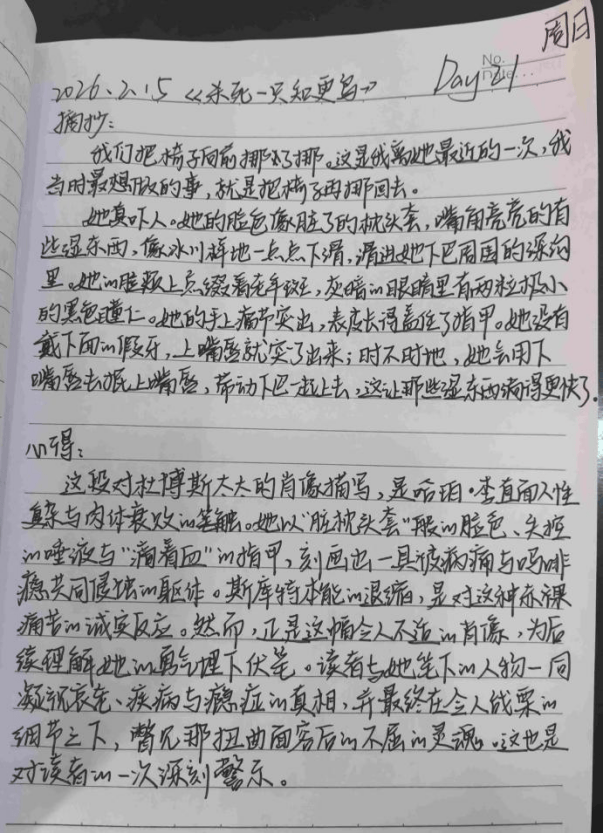 周日
No.
2026.2.15 《杀死一只知更鸟》 Day 21
摘抄：
我们把椅子向前挪了挪。这是我离她最近的一次，我
当时最想做的事，就是把椅子再挪回去。
她真吓人。她的脸色像脏了的枕头套，嘴角亮亮的有
些湿东西，像冰川样地一点点下滑，滑进她下巴周围的深沟
里。她的脸颊上点缀着老年斑，灰暗的眼睛里有两粒极小
的黑色瞳仁。她的手上痛节突出，表皮长得盖住了指甲。她没有
戴下面的假牙，上嘴唇就突了出来；时不时地，她会用下
嘴唇去抿上嘴唇，带动下巴一起上去，这让那些湿东西淌得更快了。
心得：
这段对杜博斯太太的肖像描写，是哈珀·李直面人性
复杂与肉体衰败的笔触。她以“脏枕头套”般的脸色、失控
的唾液与“滴着血”的指甲，刻画出一具被病痛与吗啡
瘾共同侵蚀的躯体。斯库特本能的退缩，是对这种赤裸
痛苦的诚实反应。然而，正是这幅令人不适的肖像，为后
续理解她的勇气埋下伏笔。读者与她笔下的人物一同
凝视衰老、疾病与瘾症的真相，并最终在令人战栗的
细节之下，瞥见那扭曲面容后的不屈的灵魂。这也是
对读者的一次深刻警示。